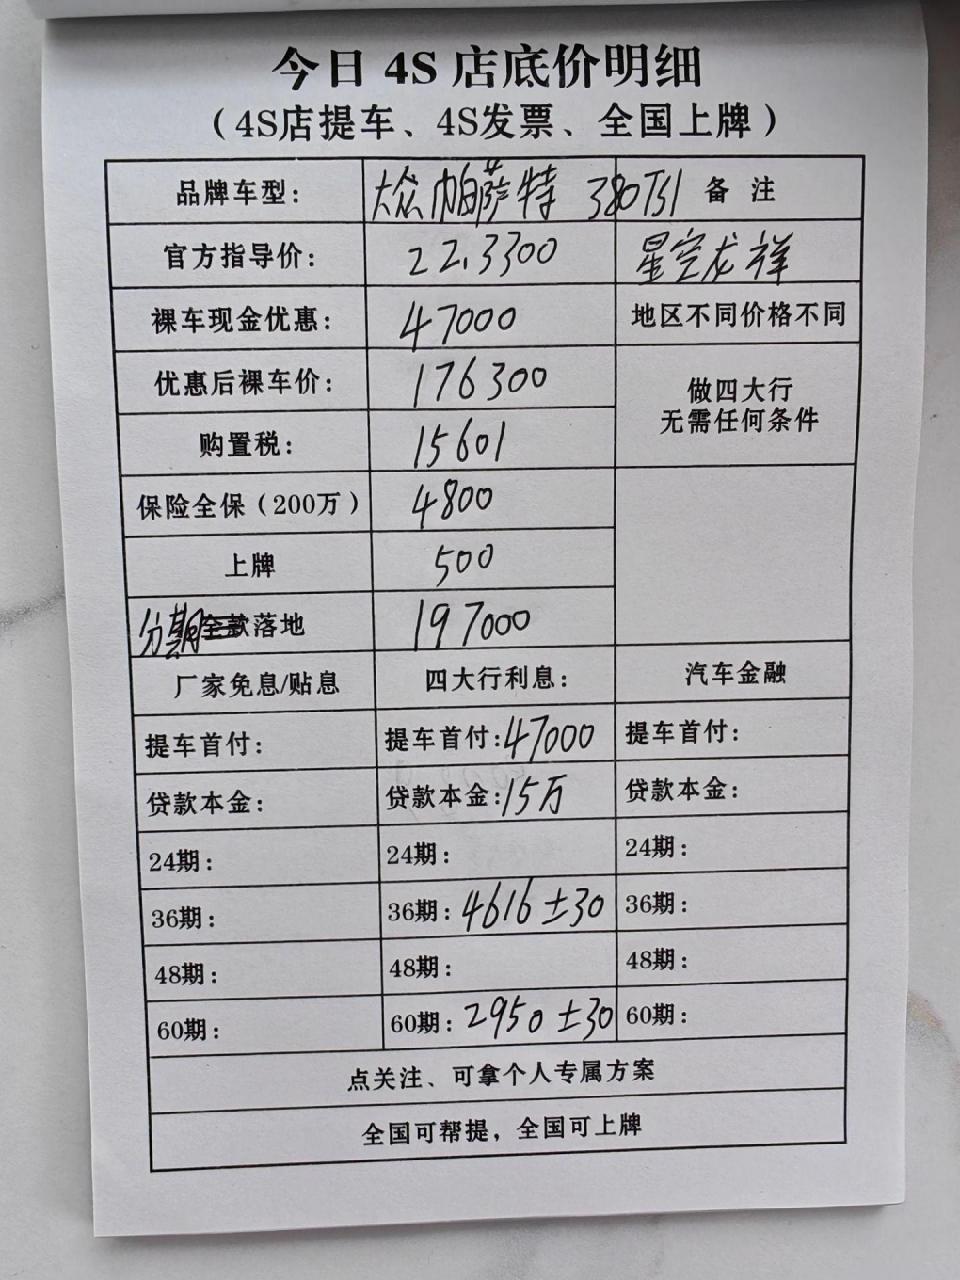 今日4S店底价明细
（4S店提车、4S发票、全国上牌）
品牌车型： 大众帕萨特 380TSI 备 注
官方指导价： 22.3300 星空龙祥
裸车现金优惠： 47000 地区不同价格不同
优惠后裸车价： 176300 做四大行
无需任何条件
购置税： 15601
保险全保（200万） 4800
上牌 500
分期全款落地 197000
厂家免息/贴息 四大行利息： 汽车金融
提车首付： 提车首付：47000 提车首付：
贷款本金： 贷款本金：15万 贷款本金：
24期： 24期： 24期：
36期： 36期：4616±30 36期：
48期： 48期： 48期：
60期： 60期：2950±30 60期：
点关注、可拿个人专属方案
全国可帮提，全国可上牌